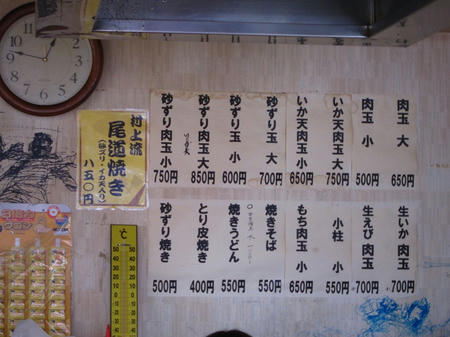 肉玉 大 650円
肉玉 小 500円
いか天肉玉 大 750円
いか天肉玉 小 650円
砂ずり玉 大 700円
砂ずり玉 小 600円
砂ずり肉玉 大 850円
砂ずり肉玉 小 750円
生いか 肉玉 700円
生えび 肉玉 700円
小柱 小 550円
もち肉玉 小 650円
焼きそば 550円
焼きうどん 550円
とり皮焼き 400円
砂ずり焼き 500円
村上流
尾道焼き
(砂ズリ・イカ天入り)
八五〇円
12
1
2
3
4
5
6
7
8
9
10
11
℃
50 50
40 40
30 30
20 20
10 10
0 0